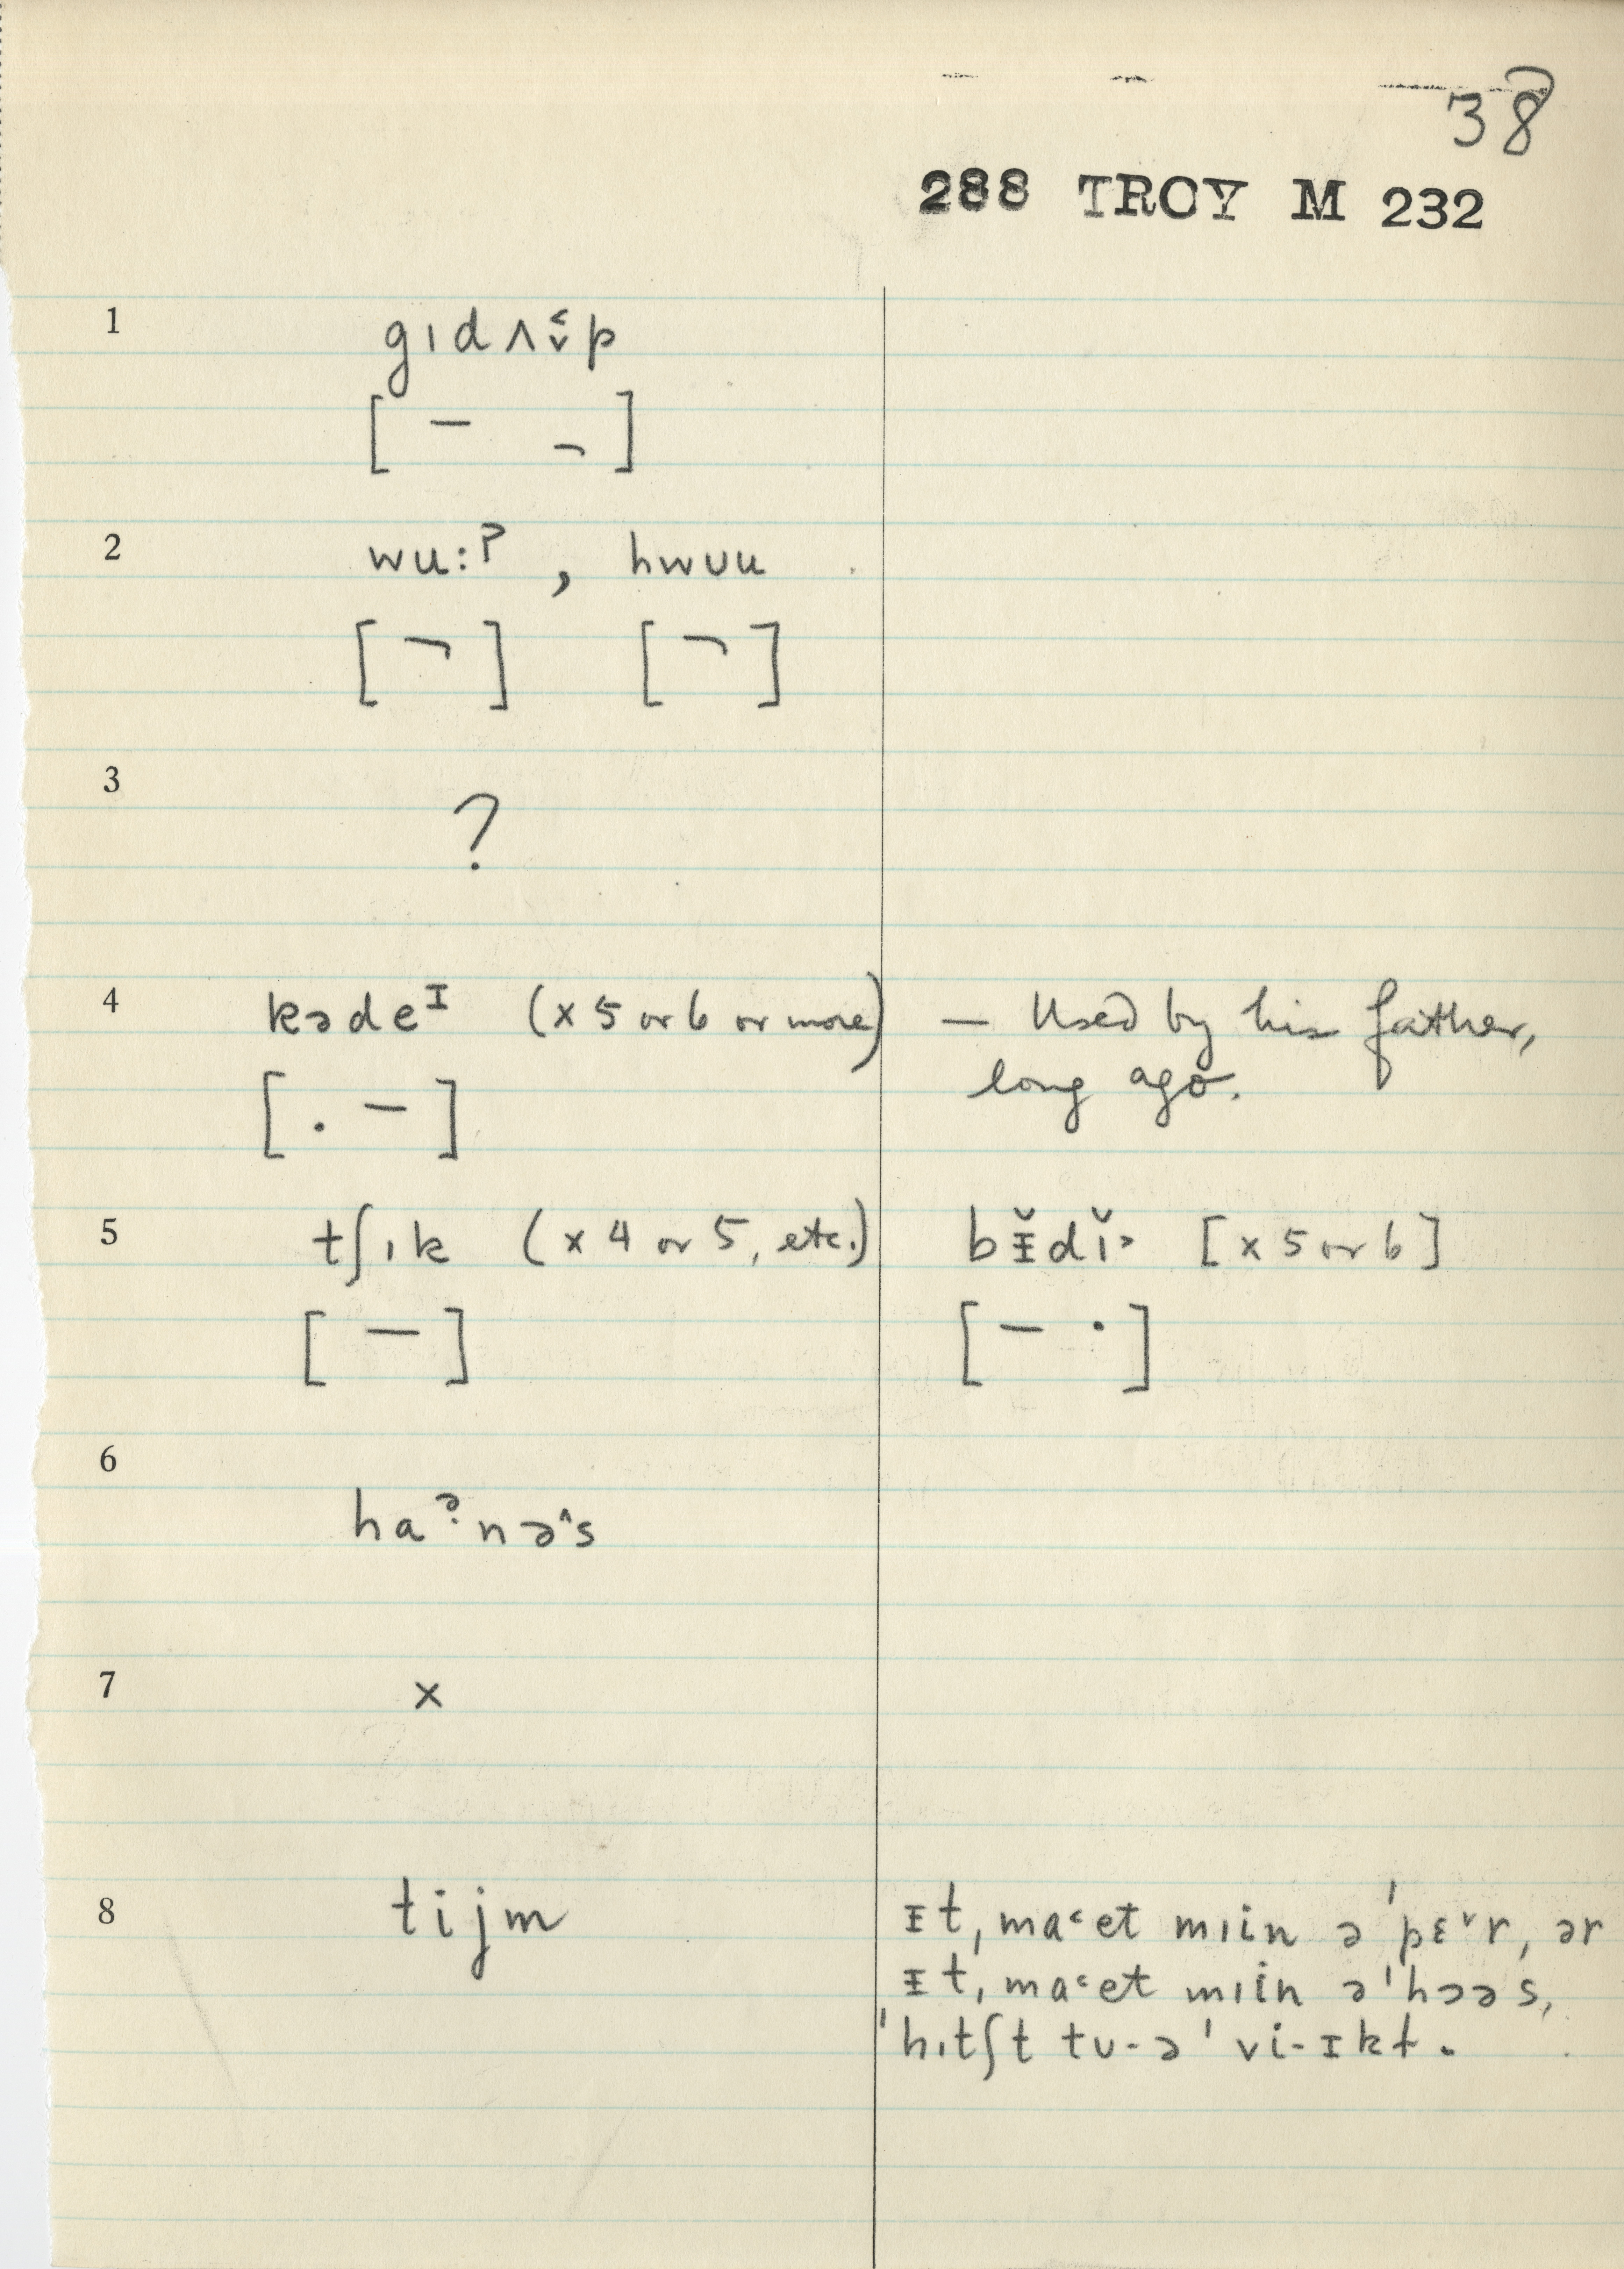 38
288 TROY M 232
1 gɪdʌ˂̬p
[ – ¬ ]
2 wu:ʔ, hwʊu
[ ¬ ] [ ¬ ]
3 ?
4 kədeᶦ (x 5 or 6 or more) — Used by his father,
[ . – ] long ago.
5 tʃɪk (x 4 or 5, etc.) bᵻ̆dĭ˃ [x 5 or 6]
[ – ] [ – · ]
6 haˀnə^s
7 x
8 tijm ɪt, ma˂et mɪin ə ˈpɛ˅r, ər
ɪt, ma˂et mɪin əˈhɔəs,
ˈhɪtʃt tʊ-əˈ vi-ɪkɫ.